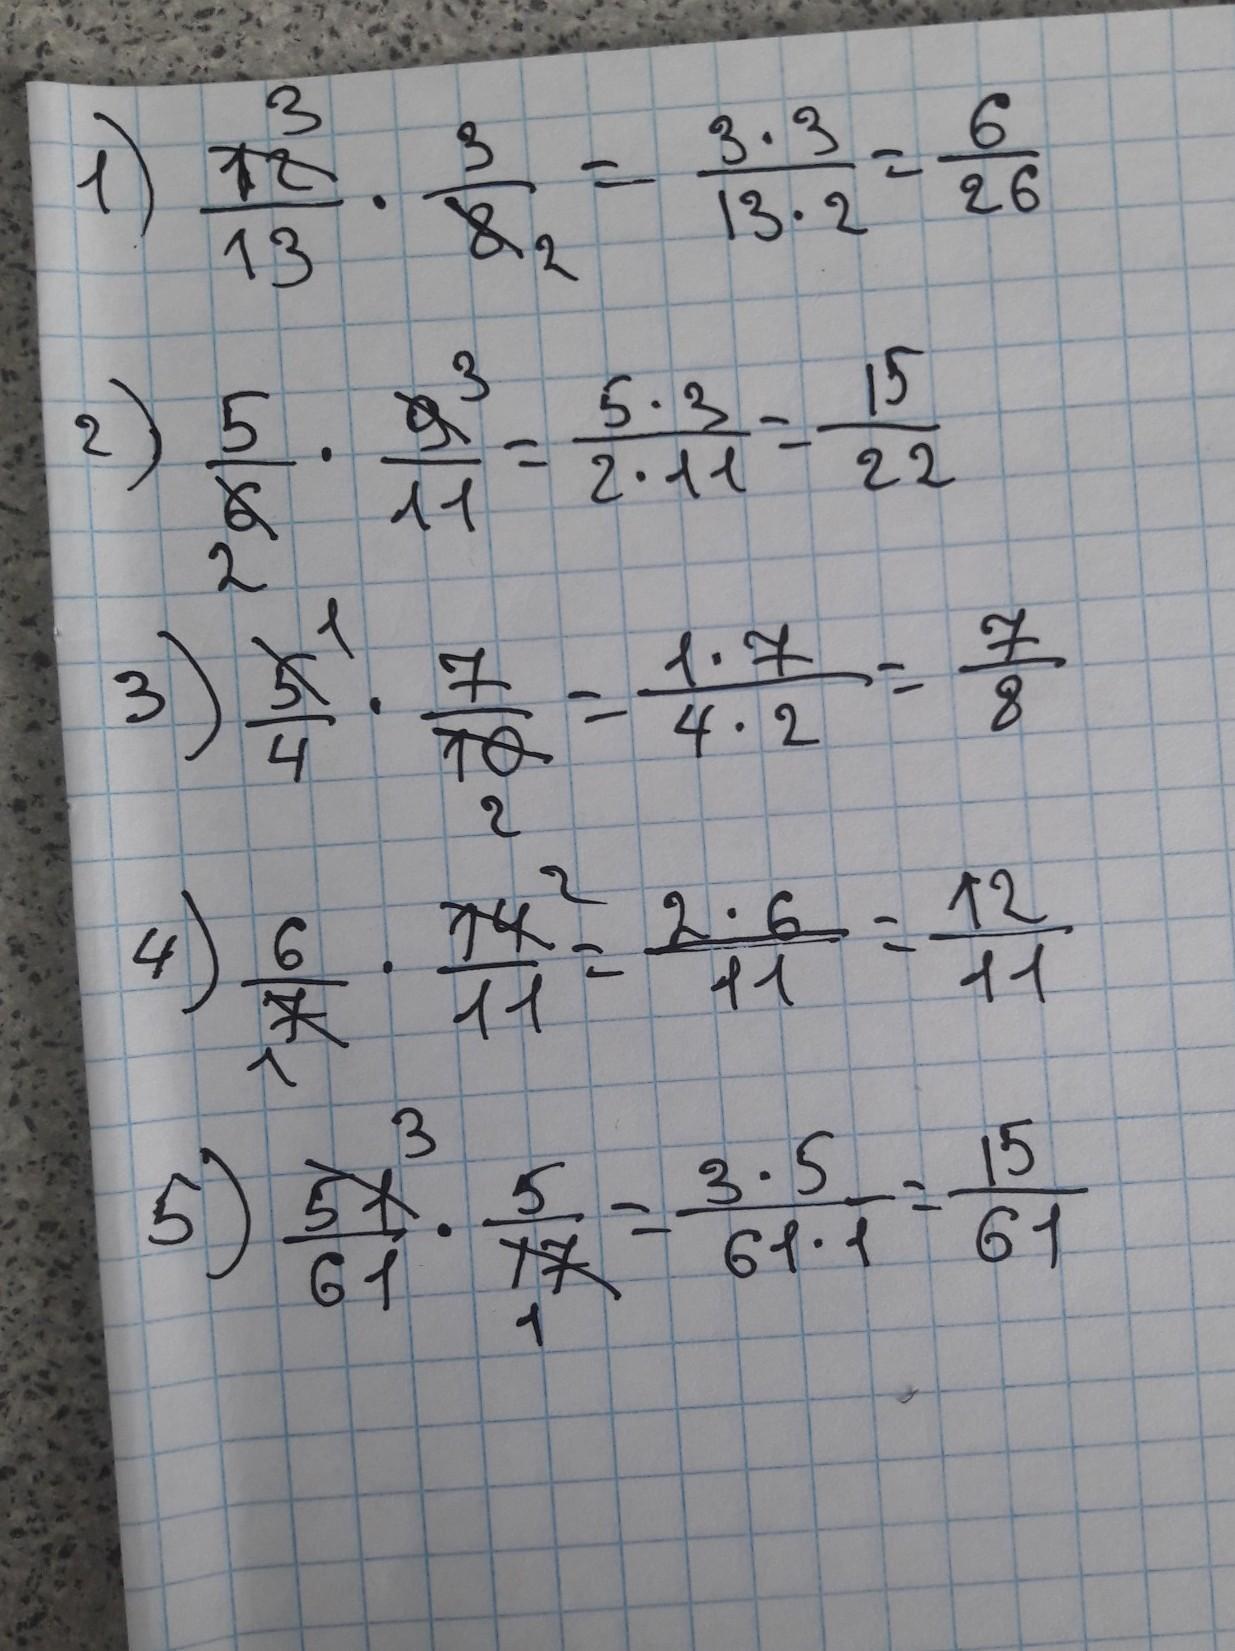 1) 12/13 3 · 3/8 2 = 3·3/13·2 = 6/26
2) 5/6 2 · 9/11 3 = 5·3/2·11 = 15/22
3) 5/4 1 · 7/10 2 = 1·7/4·2 = 7/8
4) 6/7 1 · 14/11 2 = 2·6/11 = 12/11
5) 51/61 3 · 5/17 1 = 3·5/61·1 = 15/61